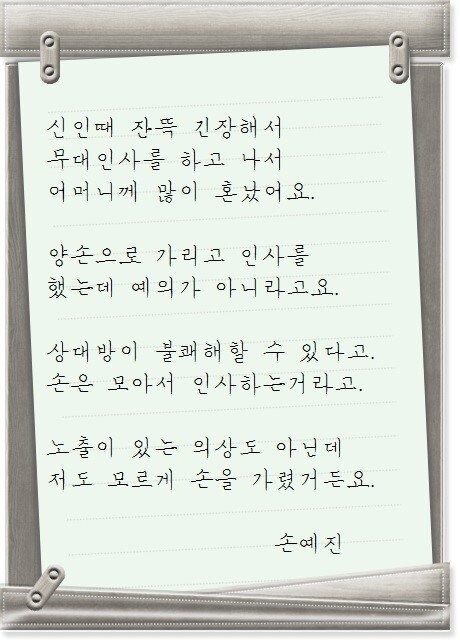 신인때 잔뜩 긴장해서
무대인사를 하고 나서
어머니께 많이 혼났어요.
양손으로 가리고 인사를
했는데 예의가 아니라고요.
상대방이 불쾌해할 수 있다고.
손은 모아서 인사하는거라고.
노출이 있는 의상도 아닌데
저도 모르게 손을 가렸거든요.
손예진